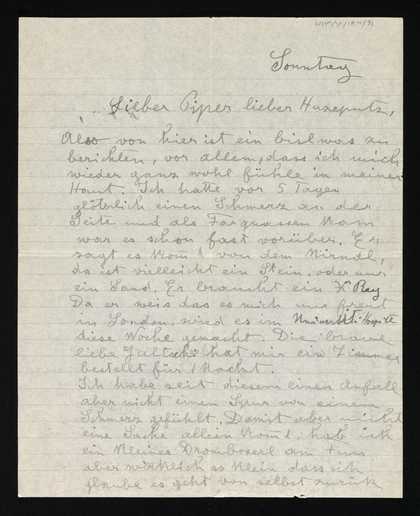 Sonntag
Lieber Piper lieber Hazeputz,
Also von hier ist ein bisl was zu
berichten, vor allem, dass ich mich
wieder ganz wohl fühle in meiner
Haut. Ich hatte vor 5 Tagen
plötzlich einen Schmerz an der
Seite und als Farquasson kam
war es schon fast vorüber. Er
sagt es kommt von dem Nirndl,
da ist vielleicht ein Stein oder nur
ein Sand. Er braucht ein X Ray
Da er weis das es mich nur freut
in London, wird es im University Hospital
diese Woche gemacht. Die brave
liebe hat mir ein Zimmer
bestellt für 1 Nacht.
Ich habe seit diesem einen Anfall
aber nicht einen Spur von einem
Schmerz gefühlt. Damit aber nicht
eine Sache allein kommt hab ich
ein kleines am
aber wirklich so klein dass ich
glaube es geht von selbst zurück